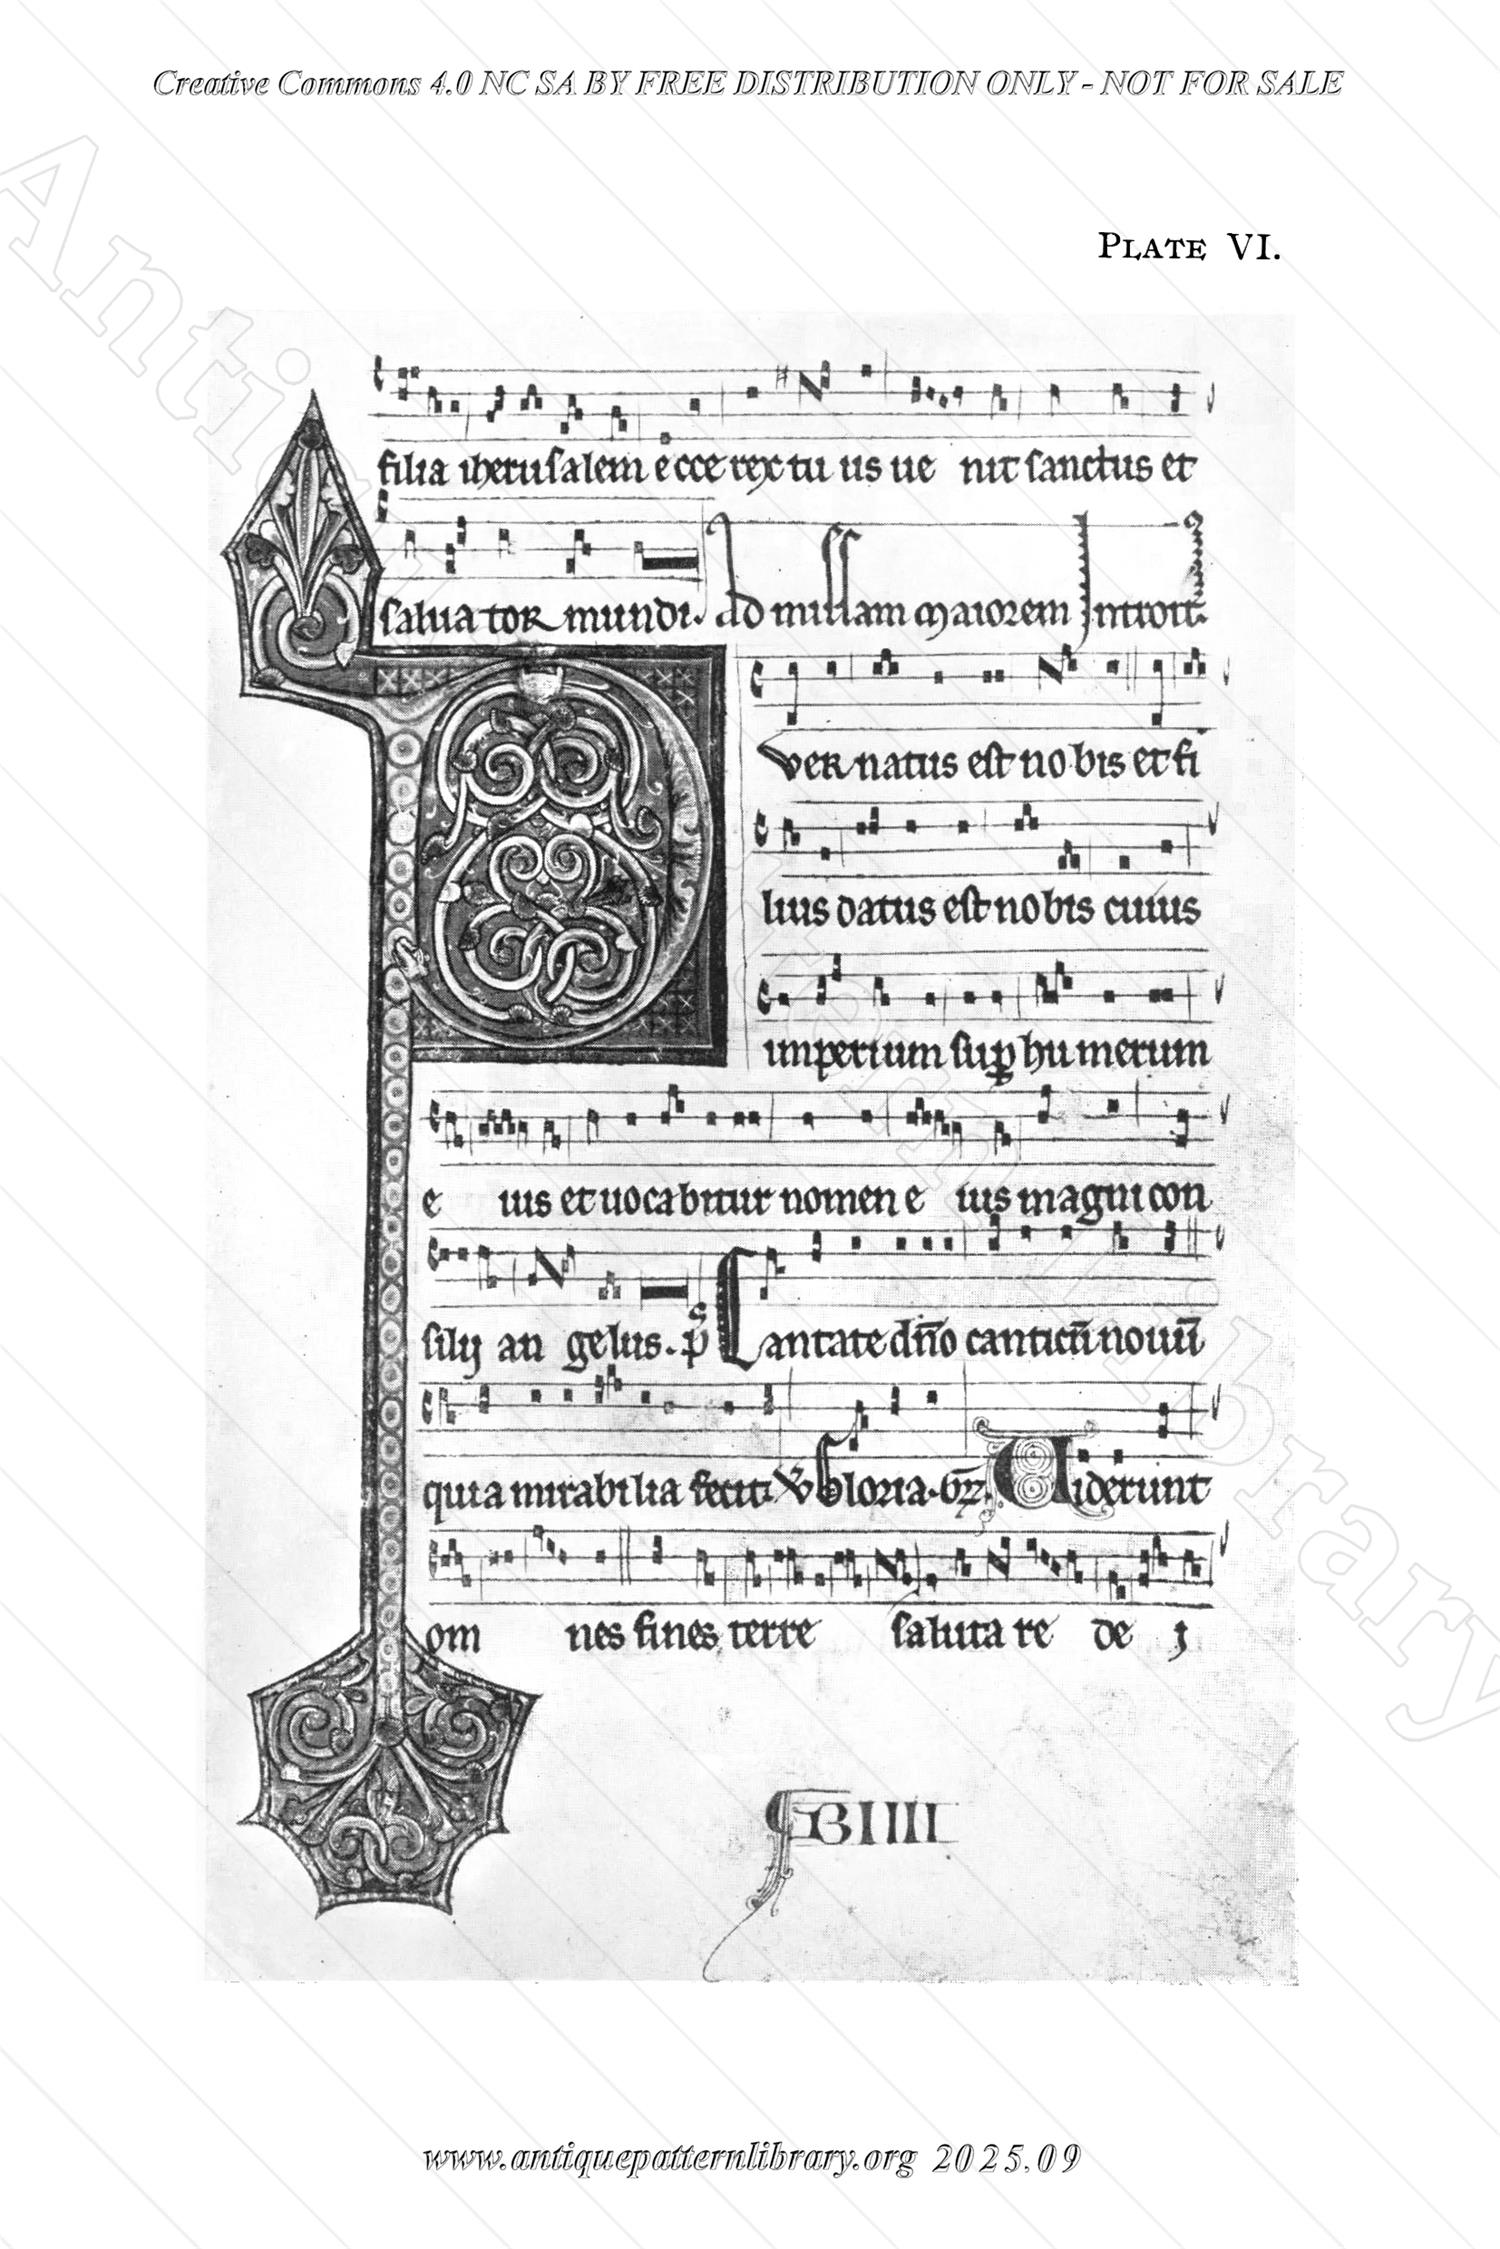 Creative Commons 4.0 NC SA BY FREE DISTRIBUTION ONLY - NOT FOR SALE
PLATE VI.
filia iherusalem ecce rex tu us ue nit sanctus et
saluator mundi. Ad missam maiorem Introit.
P
ver natus est nobis et fi
lius datus est nobis cuius
imperium sup humerum
e ius et uocabitur nomen e ius magni con
silij an gelus. p̄s Cantate dn̄o canticū nouū
quia mirabilia fecit. Gloria. Uiderunt
om nes fines terre saluta re de j
IIII
www.antiquepatternlibrary.org 2025.09
Antique Pattern Library